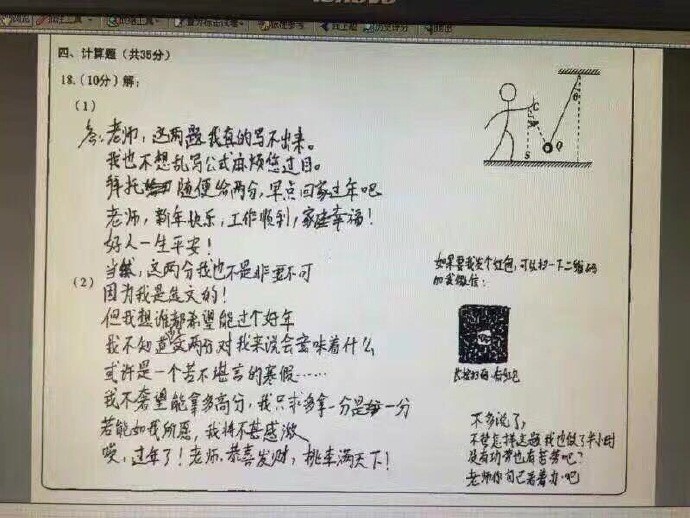 四、计算题（共35分）
18.（10分）解：
（1）
老师，这两题我真的写不出来。
我也不想乱写公式麻烦您过目。
拜托随便给两分，早点回家过年吧
老师，新年快乐，工作顺利，家庭幸福！
好人一生平安！
当然，这两分我也不是非要不可
（2）
因为我是生文的！
但我想谁都希望能过个好年
我不知道这两分对我来说会意味着什么
或许是一个苦不堪言的寒假……
我不奢望能拿多高分，我只求多拿一分是一分
若能如我所愿，我将不甚感激
唉，过年了！老师，恭喜发财，桃李满天下！
θ
C
Q
S
如果要我发个红包，可以扫一下二维码
加我微信：
长按扫码，有红包
不多说了，
不管怎样这题我也做了半小时
没有功劳也有苦劳吧？
老师你自己看着办吧